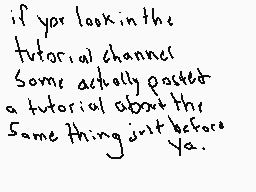 if you look in the
tutorial channel
some actually posted
a tutorial about the
same thing just before
ya.